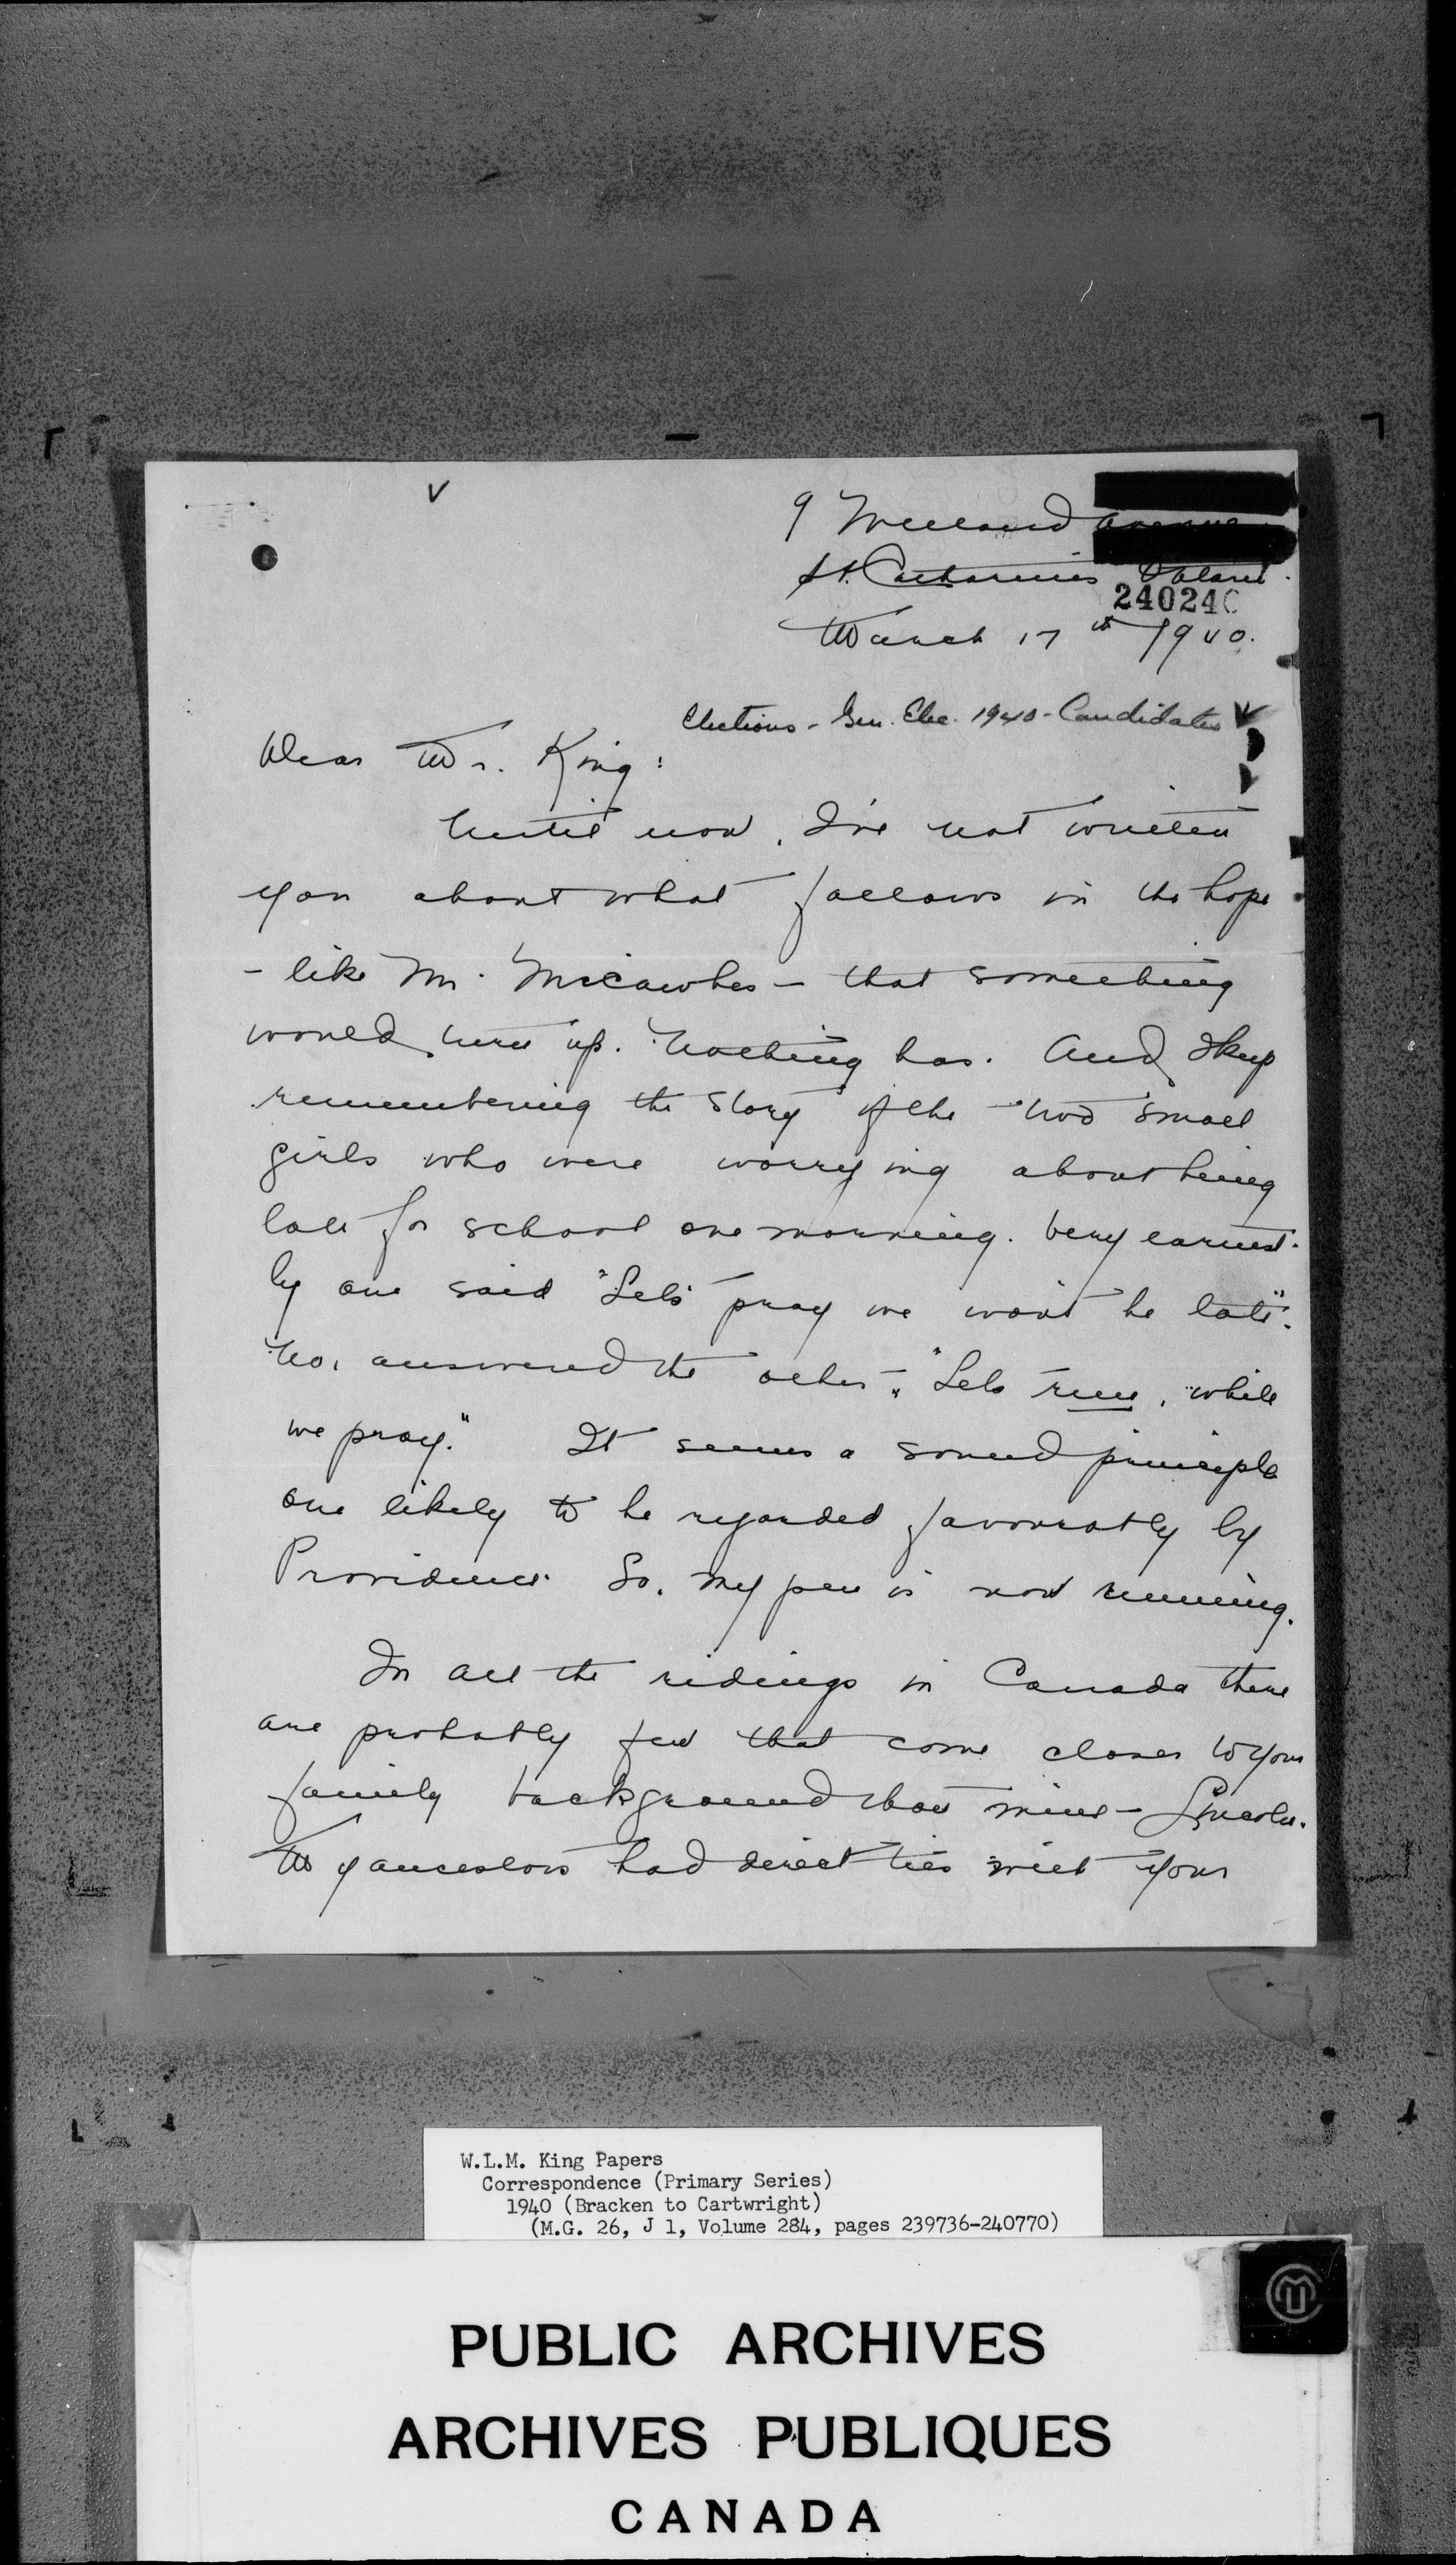 9 Welland Avenue
St. Catharines Ontario.
240240
March 17th 1940.
Elections - Gen. Elec. 1940 - Candidates
Dear Mr. King:
Until now, I've not written
you about what follows in the hope
- like Mr. Micawber - that something
would turn up. Nothing has. And I keep
remembering the story of the two small
girls who were worrying about being
late for school one morning. Very earnest-
ly one said "Let's pray we won't be late".
"No, answered the other - "Lets run, while
we pray." It seems a sound principle
one likely to be regarded favourably by
Providence. So, my pen is now running.
In all the ridings in Canada there
are probably few that come closer to your
family background than mine - Lincoln.
My ancestors had direct ties with your
W.L.M. King Papers
Correspondence (Primary Series)
1940 (Bracken to Cartwright)
(M.G. 26, J 1, Volume 284, pages 239736-240770)
PUBLIC ARCHIVES
ARCHIVES PUBLIQUES
CANADA